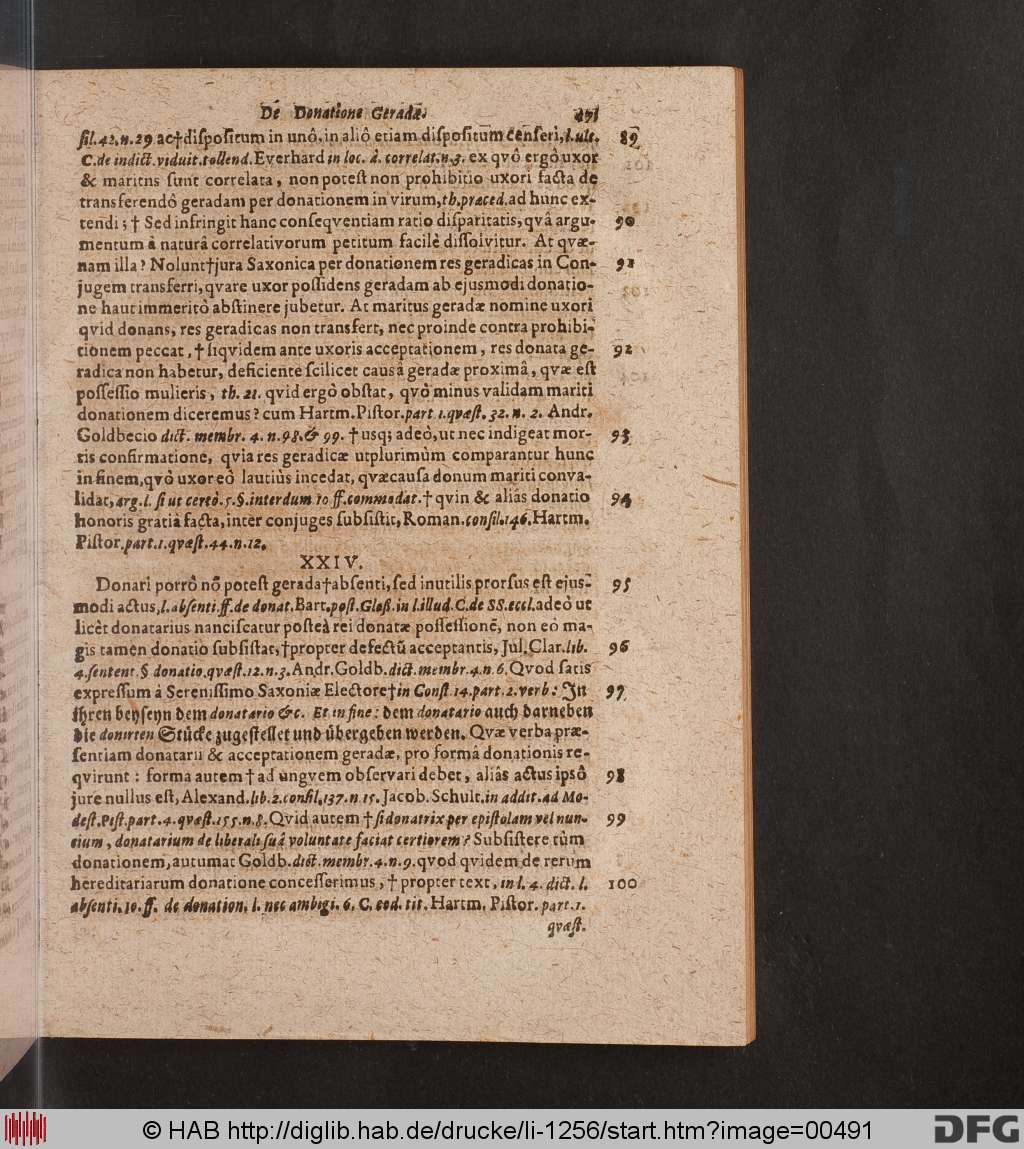 De Donatione Geradæ. 471
sil. 42. n. 29 ac†dispositum in unô, in aliô etiam dispositum censeri, l. ult. 89
C. de indict. viduit. tollend. Everhard in loc. à. correlat. n. 3. ex qvô ergò uxor
& maritus sunt correlata, non potest non prohibitio uxori facta de
transferendô geradam per donationem in virum, th. præced. ad hunc ex-
tendi; † Sed infringit hanc conseqventiam ratio disparitatis, qvâ argu- 90
mentum à naturâ correlativorum petitum facilè dissolvitur. At qvæ-
nam illa? Nolunt†jura Saxonica per donationem res geradicas in Con- 91
jugem transferri, qvare uxor possidens geradam ab ejusmodi donatio-
ne haut immeritò abstinere jubetur. At maritus geradæ nomine uxori
qvid donans, res geradicas non transfert, nec proinde contra prohibi-
tionem peccat, † siqvidem ante uxoris acceptationem, res donata ge- 92
radica non habetur, deficiente scilicet causâ geradæ proximâ, qvæ est
possessio mulieris, th. 21. qvid ergò obstat, qvò minus validam mariti
donationem diceremus? cum Hartm. Pistor. part 1. qvæst. 32. n. 2. Andr.
Goldbecio dict. membr. 4. n. 98. & 99. † usq; adeò, ut nec indigeat mor- 93
tis confirmatione, qvia res geradicæ utplurimùm comparantur hunc
in finem, qvò uxor eò lautiùs incedat, qvæ causa donum mariti conva-
lidat, arg. l. si ut certò. 5. §. interdum 10 ff. commodat. † qvin & aliâs donatio 94
honoris gratiâ facta, inter conjuges subsistit, Roman. consil. 146. Hartm.
Pistor. part. 1. qvæst. 44. n. 12.
XXIV.
Donari porrò nō potest gerada†absenti, sed inutilis prorsus est ejus- 95
modi actus, l. absenti. ff. de donat. Bart. post. Gloß. in l. illud. C. de SS. eccl. adeò ut
licèt donatarius nanciscatur posteà rei donatæ possessionē, non eò ma-
gis tamen donatio subsistat, †propter defectū acceptantis, Jul. Clar. lib. 96
4. sentent. § donatio. qvæst. 12. n. 3. Andr. Goldb. dict. membr. 4. n. 6. Qvod satis
expressum à Serenissimo Saxoniæ Electore†in Const. 14. part. 2. verb: In 97
ihren beyseyn dem donatario &c. Et in fine: dem donatario auch darneben
die donirten Stücke zugestellet und übergeben werden. Qvæ verba præ-
sentiam donatarii & acceptationem geradæ, pro formâ donationis re-
qvirunt: forma autem † ad ungvem observari debet, aliâs actus ipsô 98
jure nullus est, Alexand. lib. 2. consil. 137. n. 15. Jacob. Schult. in addit. ad Mo-
dest. Pist. part. 4. qvæst. 155. n. 8. Qvid autem † si donatrix per epistolam vel nun- 99
cium, donatarium de liberali suâ voluntate faciat certiorem? Subsistere tùm
donationem, autumat Goldb. dict. membr. 4. n. 9. qvod qvidem de rerum
hereditariarum donatione concesserimus, † propter text. in l. 4. dict. l. 100
absenti. 10. ff. de donation. l. nec ambigi. 6. C. eod. tit. Hartm. Pistor. part. 1.
qvæst.
© HAB http://diglib.hab.de/drucke/li-1256/start.htm?image=00491
DFG